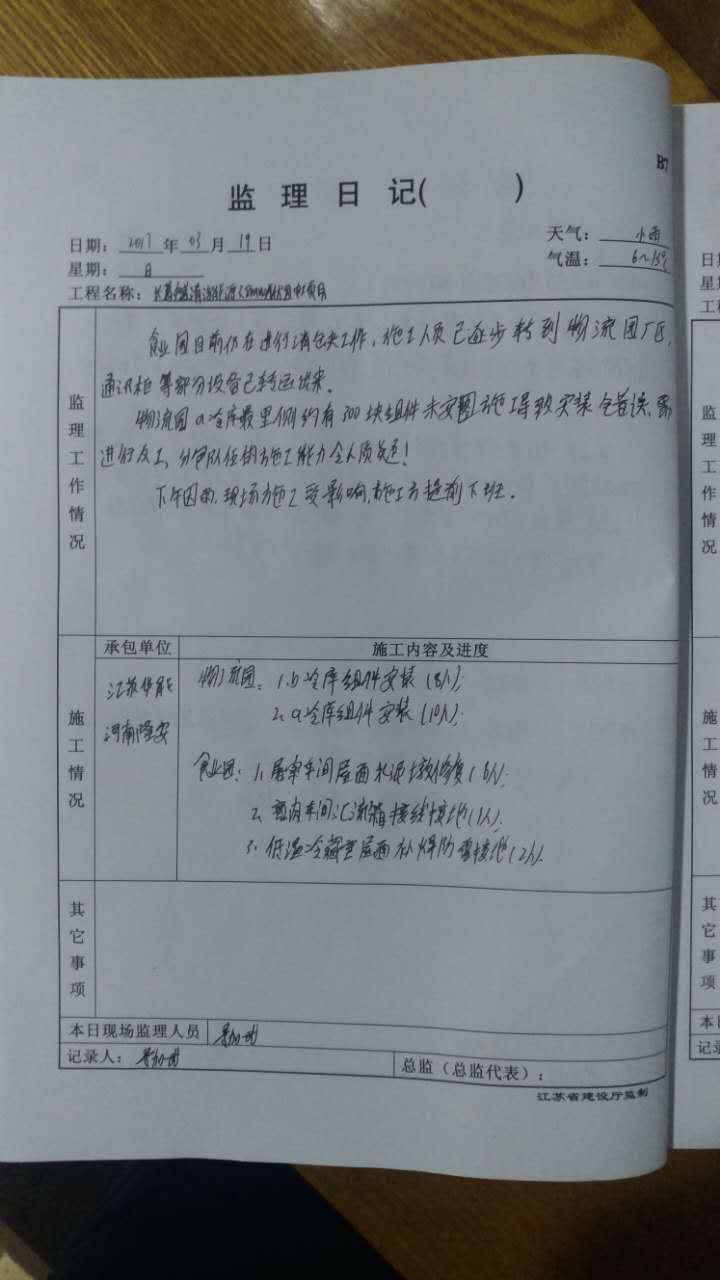 B7
监 理 日 记(        )
日期: 2017 年 03 月 19 日
天气: 小雨
星期: 日
气温: 6~13℃
工程名称: 清洁能源 项目
监理工作情况
食业园目前仍在进行消缺工作,施工人员已逐步转到物流园厂区,
通讯柜等部分设备已转运出来。
物流园a冷库最里侧约有300块组件未安图施工导致安装全普误,需
进行返工,分包队伍的施工能力令人质疑!
下午因雨,现场施工受影响,施工方提前下班。
施工情况
承包单位
施工内容及进度
江苏华能
河南隆安
物流园: 1. b冷库组件安装(8人);
2. a冷库组件安装(10人);
食业园: 1. 屠宰车间屋面水泥墩修复(6人);
2. 车间汇流箱接线接地(1人);
3. 低温冷藏库屋面补焊防雷接地(2人)
其它事项
本日现场监理人员
记录人:
总监(总监代表):
江苏省建设厅监制
日
星
工
监理工作情况
施工情况
其它事项
本
记录